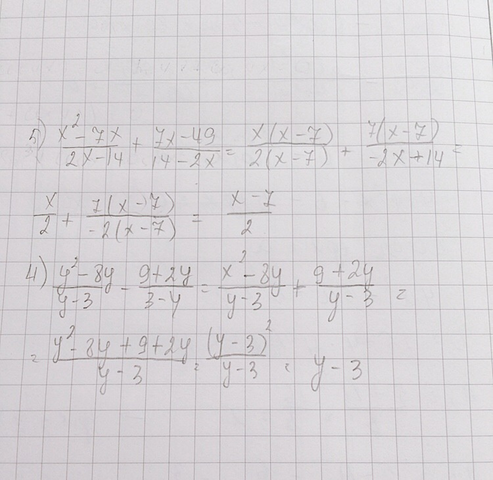 5) \frac{x^2 - 7x}{2x - 14} + \frac{7x - 49}{14 - 2x} = \frac{x(x - 7)}{2(x - 7)} + \frac{7(x - 7)}{-2x + 14} =
\frac{x}{2} + \frac{7(x - 7)}{-2(x - 7)} = \frac{x - 7}{2}
4) \frac{y^2 - 8y}{y - 3} - \frac{9 + 2y}{3 - y} = \frac{x^2 - 8y}{y - 3} + \frac{9 + 2y}{y - 3} =
= \frac{y^2 - 8y + 9 + 2y}{y - 3} = \frac{(y - 3)^2}{y - 3} = y - 3